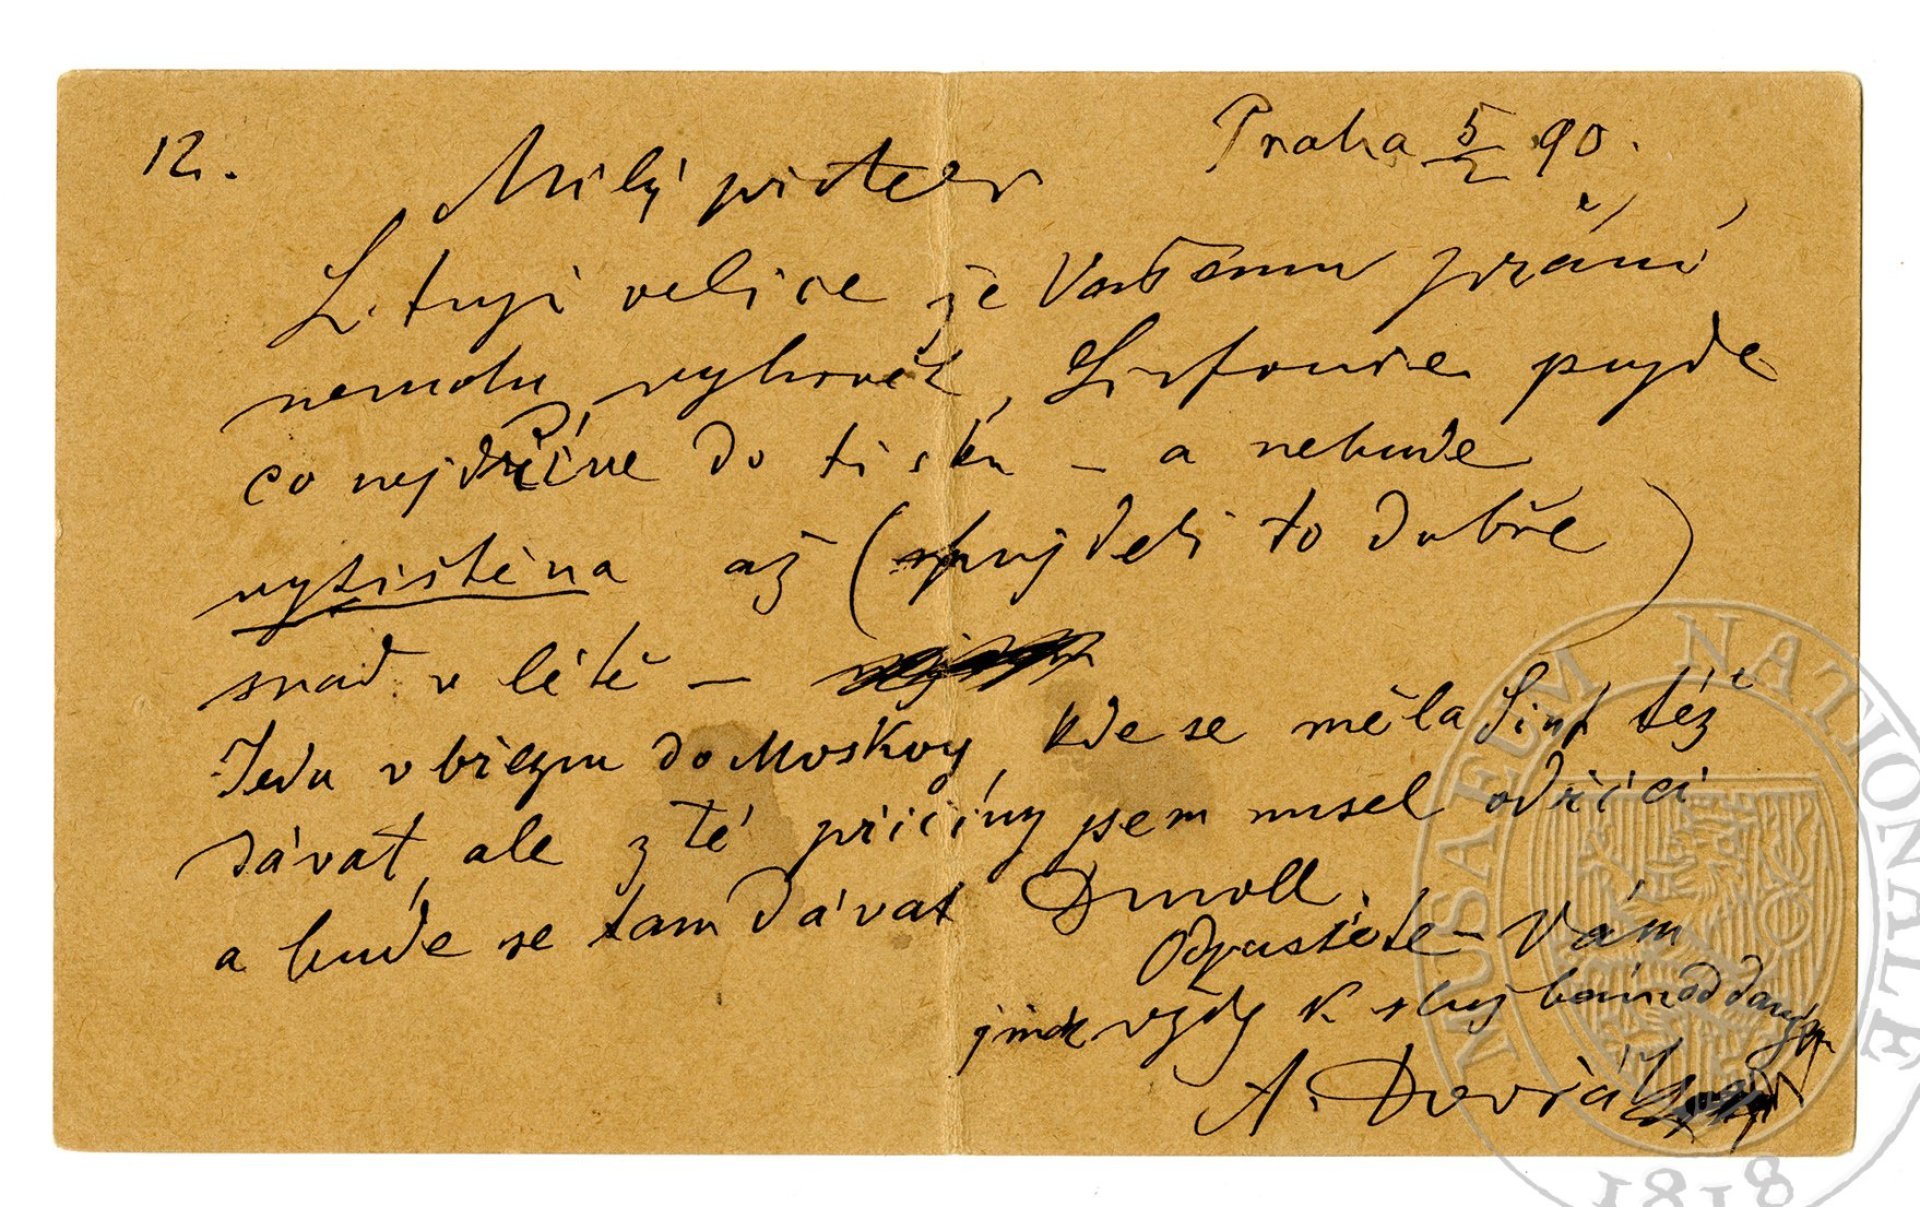 12.
Praha 5/2 90.
Milý příteli
Lituji velice že Vašemu přání
nemohu vyhověť, Sinfonie pujde
co nejdříve do tisku – a nebude
vytištěna až (pujdeli to dobře)
snad v létě –
Jedu v březnu do Moskvy, kde se měla Sinf též
dávat, ale z té příčiny jsem musel odříci
a bude se tam dávat Dmoll.
Odpusťte – Vám
jinak vždy k službám oddaný
A. Dvořák
MUSAEUM NATIONALE
1818